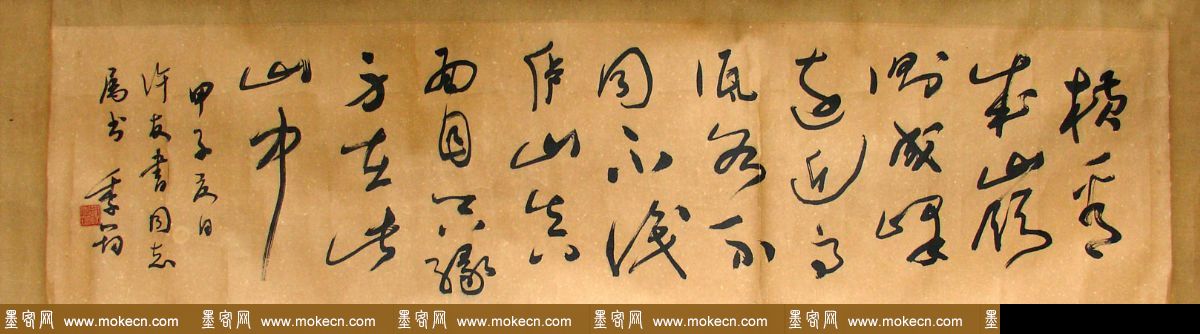 橫看
成嶺
側成峰
遠近高
低各不
同不識
庐山真
面目只緣
身在此
山中
甲子夏日
许友書同志
属书
墨客网 www.mokecn.com 墨客网 www.mokecn.com 墨客网 www.mokecn.com 墨客网 www.mokecn.com 墨客网 www.mokecn.com